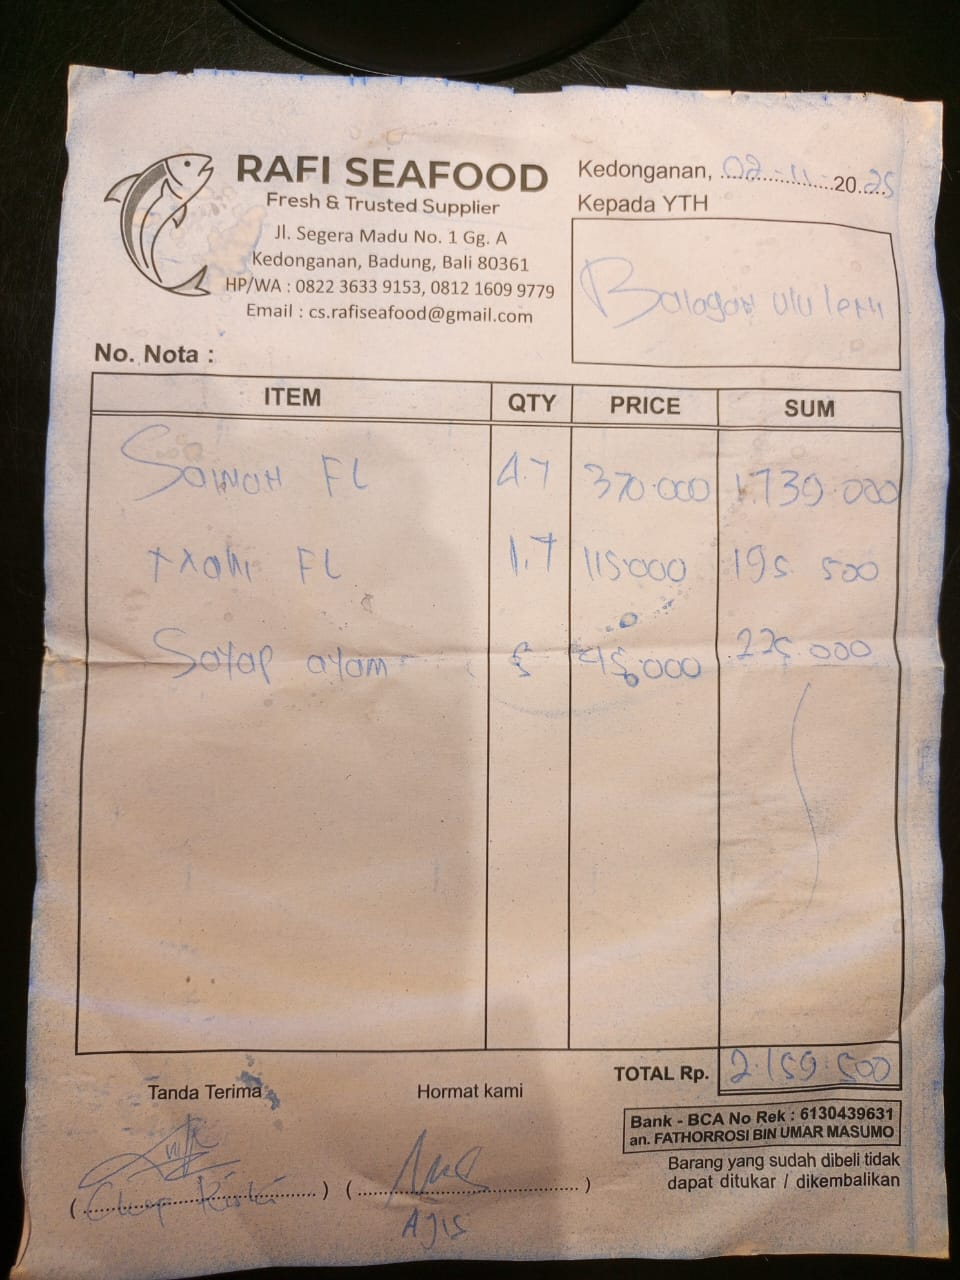 RAFI SEAFOOD
Fresh & Trusted Supplier
Jl. Segera Madu No. 1 Gg. A
Kedonganan, Badung, Bali 80361
HP/WA : 0822 3633 9153, 0812 1609 9779
Email : cs.rafiseafood@gmail.com
Kedonganan, 02-11-2025
Kepada YTH
Balagan
No. Nota :
ITEM QTY PRICE SUM
FL 4.7 370.000 1.739.000
FL 1.7 115.000 195.500
Sayap ayam 5 45.000 225.000
TOTAL Rp. 2.159.500
Tanda Terima Hormat kami
Bank - BCA No Rek : 6130439631
an. FATHORROSI BIN UMAR MASUMO
Barang yang sudah dibeli tidak
dapat ditukar / dikembalikan
AJIS